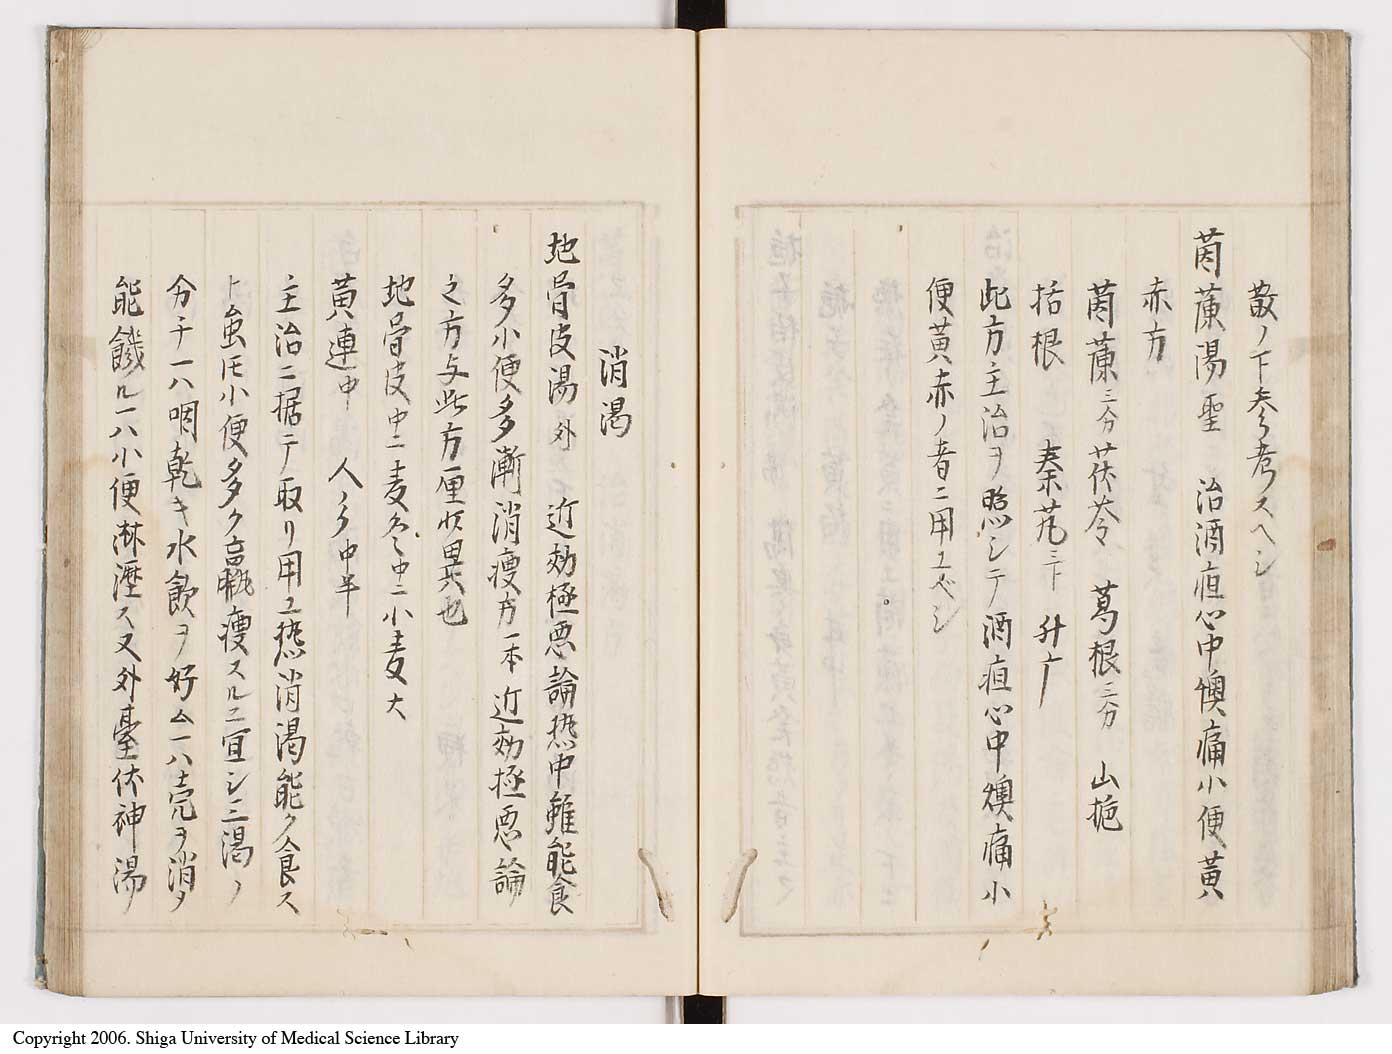 散ノ下参考スヘシ
茵蔯湯聖 治酒疸心中懊痛小便黄
赤方
茵蔯三分茯苓 葛根三分 山梔
括根 秦艽三下 升广
此方主治ヲ照シテ酒疸心中燠痛小
便黄赤ノ者ニ用ユベシ
消渇
地骨皮湯外 近効極要論㷱中雖能食
多小便多漸消瘦方一本近効極要論
之方与此方厘状異也
地骨皮中ニ麦門中ニ小麦大
黄連中 人参中半
主治ニ据テ取リ用ユ㷱消渇能ク食ス
ト虽𪜈小便多ク肌瘦スルニ宜シ三渇ノ
分チ一ハ咽乾キ水飲ヲ好ム一ハ壳ヲ消ノ
能饑ル一ハ小便淋瀝ス又外臺茯神湯ノ